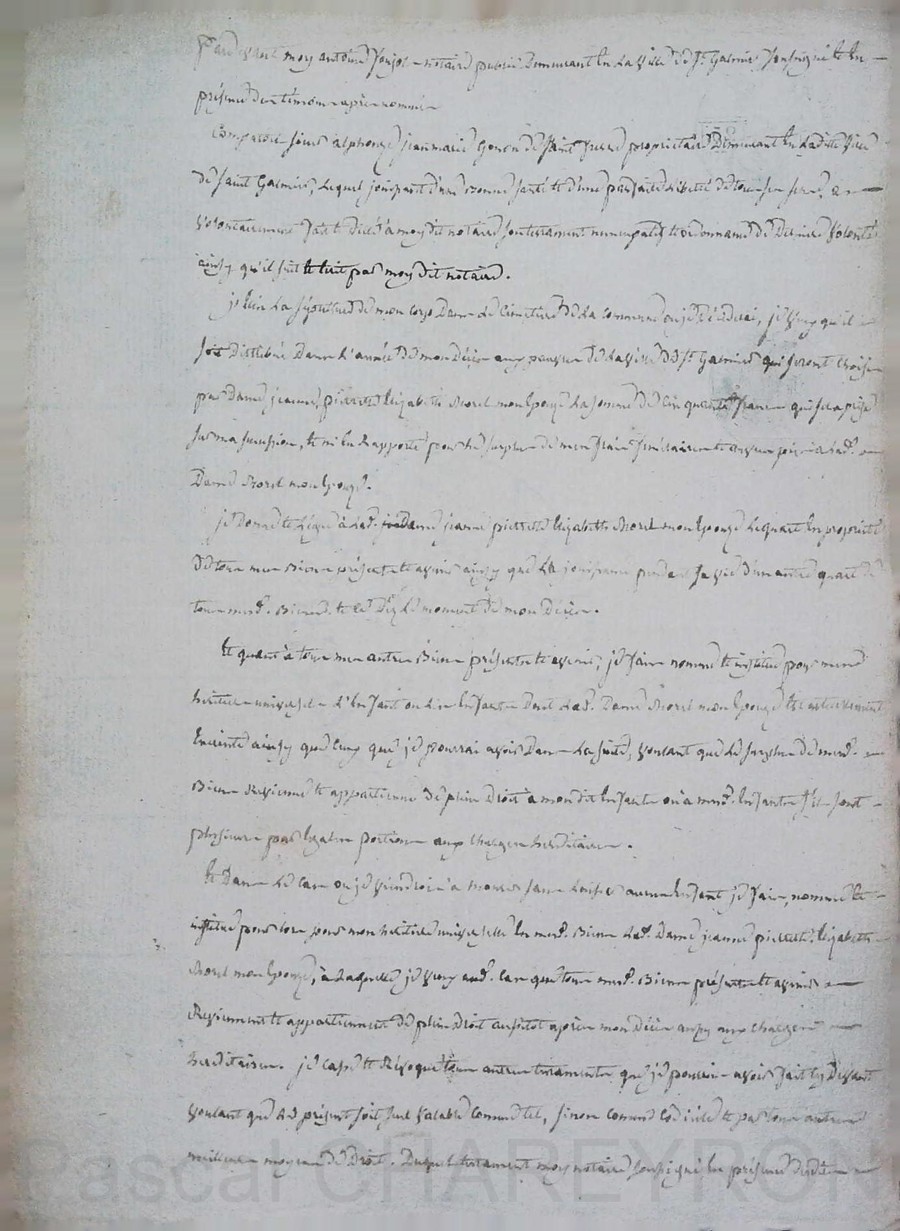 Par devant moy antoine notaire public Demeurant En La Ville de St. Galmier Soussigné et En
présence des témoins après nommés
Comparu sieur alphonse jean marie Gonon de Saint propriétaire Demeurant En Ladite Ville
de Saint Galmier, Lequel jouissant d'une bonne santé et d'une parfaite Liberté de tous ses sens, a
volontairement fait et dicté à moy dit notaire son testament nuncupatif et ordonnance de Derniere Volonté
ainsy qu'il suit et Ecrit par moy dit notaire.
je La Sépulture de mon corps Dans Le Cimetiere de La Commune ou je décéderai, je veux qu'il
soit Distribué Dans L'année de mon Décès aux pauvres de La Ville de St. Galmier qui seront choisis
par Dame jeanne pierrette Elizabeth Morel mon Epouse La somme de Cinquante francs qui sera prise
sur ma succession, et m'En Rapporte pour le surplus de mes frais funéraires et œuvres pies à Lad.
Dame Morel mon Epouse.
je Donne et Légue à Lad. Dame jeanne pierrette Elizabeth Morel mon Epouse Le quart En propriété
de tous mes Biens présents et avenir ainsy que La jouissance pendant sa vie d'un autre quart de
tous mesd. Biens. et ce Dez Le moment de mon Décès.
Et quant à tous mes autres Biens présents et avenir, je fais nomme et institue pour mes
héritiers universels L'Enfant ou Les Enfants Dont Lad. Dame Morel mon Epouse Est actuellement
Enceinte ainsy que Ceux que je pourrai avoir Dans La suite, voulant que Le surplus de mesd.
Biens Revienne et appartienne de plein Droit à mondit Enfant ou à mesd. Enfants s'ils sont
plusieurs par Egales portions aux charges héréditaires.
Et Dans Le Cas ou je viendrois à mourir sans Laisser aucun Enfant je fais, nomme et
institue pour lors pour mon héritiere universelle En mesd. Biens Lad. Dame jeanne pierrette Elizabeth
Morel mon Epouse, à Laquelle je veux aud. Cas que tous mesd. Biens présents et avenir
Reviennent et appartiennent de plein Droit aussitot après mon Décès aussy aux charges
héréditaires. je Casse et Révoque tous autres testaments que je pourrois avoir fait Cy Devant
voulant que Le présent soit seul valable comme tel, sinon comme Codicile et par tous autres
meilleurs moyens de Droit. Duquel testament moy notaire soussigné En présence desdits
Pascal CHAREYRON